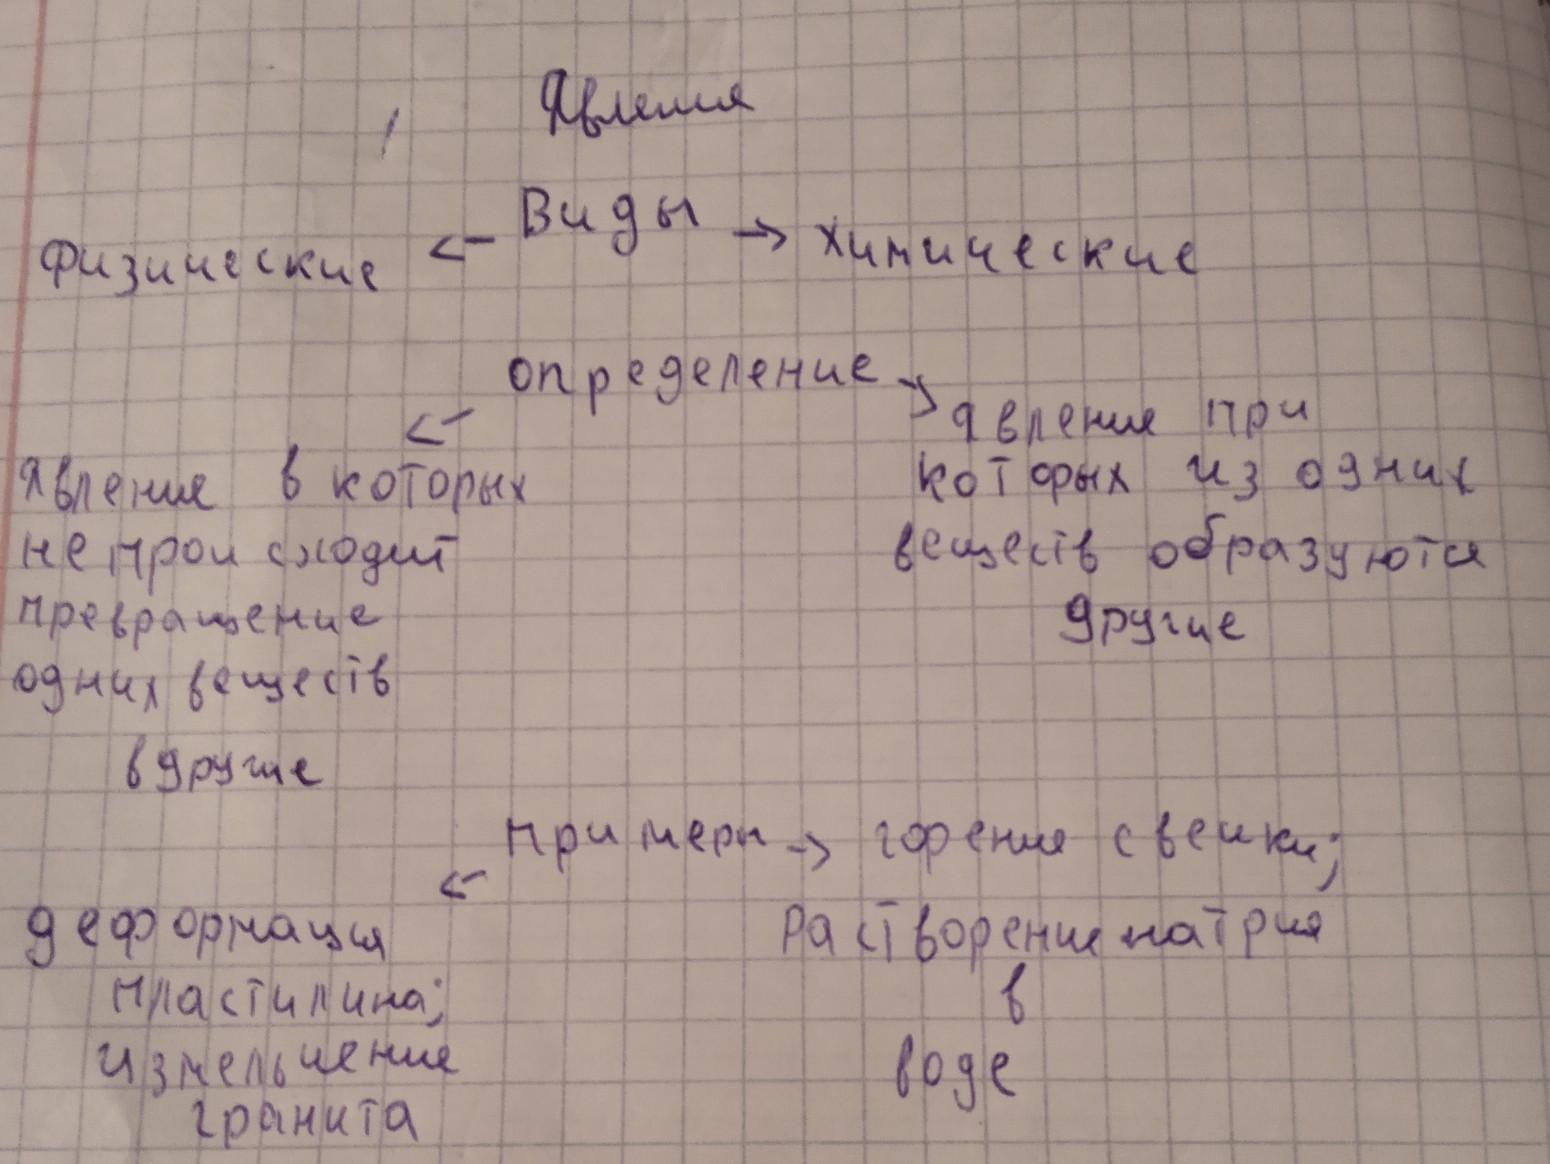 Явления
Физические <- Виды -> химические
определение
<- ->
явление при
Явление в которых
которых из одних
не происходит
веществ образуются
превращение
другие
одних веществ
в другие
примеры -> горение свечки;
<-
деформация
Растворение натрия
пластилина;
в
измельчение
воде
гранита